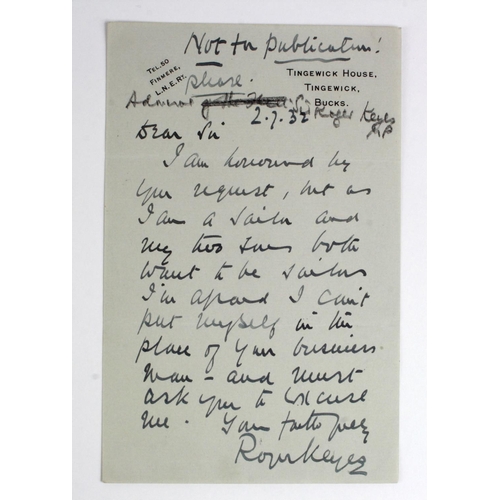 Not for publication!
please.
TEL. 50
FINMERE,
L.N.E.RY.
TINGEWICK HOUSE,
TINGEWICK,
BUCKS.
Admiral of the Fleet Sir Roger Keyes
MP
2.7.32
Dear Sir
I am honoured by
your request, but as
I am a sailor and
my two sons both
want to be sailors
I'm afraid I can't
put myself in the
place of your business
man - and must
ask you to excuse
me. Yours faithfully
Roger Keyes